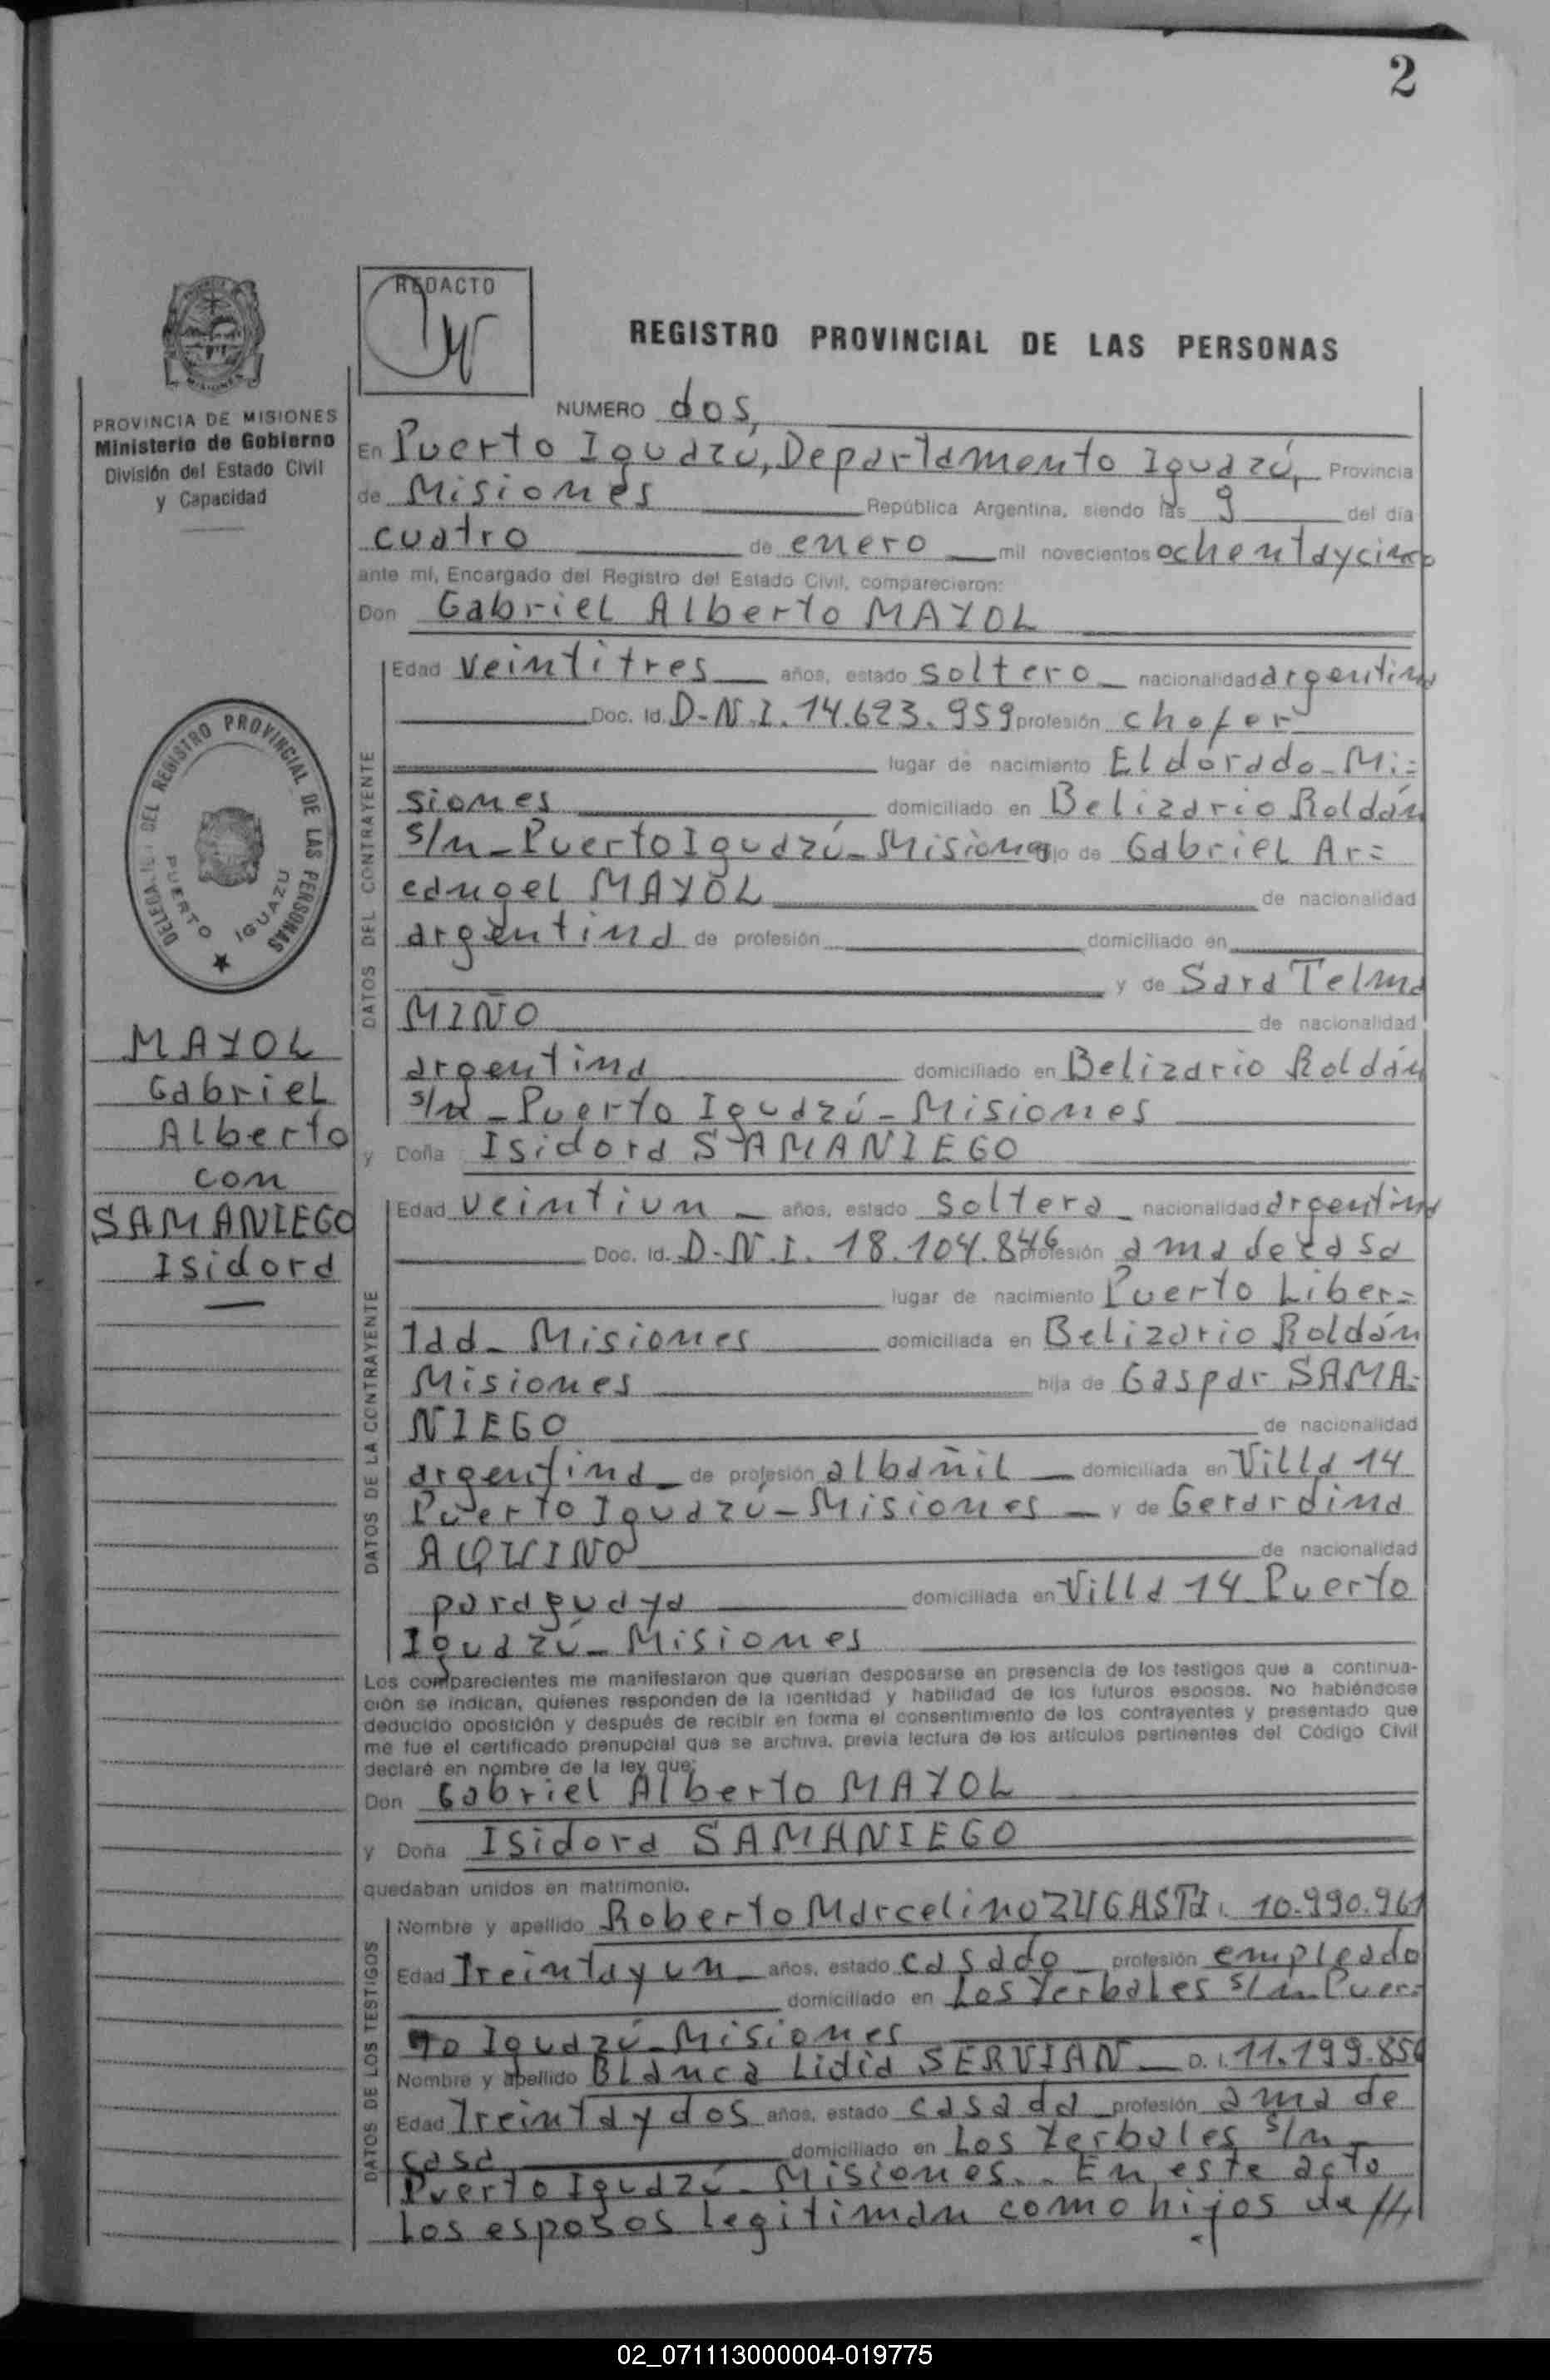 2
REDACTO
REGISTRO PROVINCIAL DE LAS PERSONAS
MISIONES
PROVINCIA DE MISIONES
Ministerio de Gobierno
División del Estado Civil
y Capacidad
NUMERO dos,
En Puerto Iguazú, Departamento Iguazú, Provincia
de Misiones República Argentina, siendo las 9 del día
cuatro de enero mil novecientos ochentaycinco
ante mí, Encargado del Registro del Estado Civil, comparecieron:
Don Gabriel Alberto MAYOL
DATOS DEL CONTRAYENTE
Edad veintitres años, estado soltero nacionalidad argentina
Doc. Id. D.N.I. 14.623.959 profesión chofer
lugar de nacimiento Eldorado - Mi=
siones domiciliado en Belizario Roldán
s/n - Puerto Iguazú - Misiones hijo de Gabriel Ar=
cangel MAYOL de nacionalidad
argentina de profesión domiciliado en
y de Sara Telma
MIÑO de nacionalidad
argentina domiciliado en Belizario Roldán
s/n - Puerto Iguazú - Misiones
y Doña Isidora SAMANIEGO
DELEGA DEL REGISTRO PROVINCIAL DE LAS PERSONAS
PUERTO IGUAZU
MAYOL
Gabriel
Alberto
con
SAMANIEGO
Isidora
DATOS DE LA CONTRAYENTE
Edad veintiun años, estado soltera nacionalidad argentina
Doc. Id. D.N.I. 18.104.846 profesión ama de casa
lugar de nacimiento Puerto Liber=
tad - Misiones domiciliada en Belizario Roldán
Misiones hija de Gaspar SAMA=
NIEGO de nacionalidad
argentina de profesión albañil domiciliada en Villa 14
Puerto Iguazú - Misiones y de Gerardina
AQUINO de nacionalidad
paraguaya domiciliada en Villa 14 Puerto
Iguazú - Misiones
Los comparecientes me manifestaron que querían desposarse en presencia de los testigos que a continua-
ción se indican, quienes responden de la identidad y habilidad de los futuros esposos. No habiéndose
deducido oposición y después de recibir en forma el consentimiento de los contrayentes y presentado que
me fue el certificado prenupcial que se archiva, previa lectura de los artículos pertinentes del Código Civil
declaré en nombre de la ley que:
Don Gabriel Alberto MAYOL
y Doña Isidora SAMANIEGO
quedaban unidos en matrimonio.
DATOS DE LOS TESTIGOS
Nombre y apellido Roberto Marcelino ZUGASTI. 10.990.961
Edad Treintayun años, estado casado profesión empleado
domiciliado en Los Yerbales s/n. Puer=
to Iguazú - Misiones
Nombre y apellido Blanca Lidia SERVIAN D.I. 11.199.856
Edad Treintaydos años, estado casada profesión ama de
casa domiciliado en Los Yerbales s/n -
Puerto Iguazú - Misiones.. En este acto
los esposos legitiman como hijos de //
02_071113000004-019775